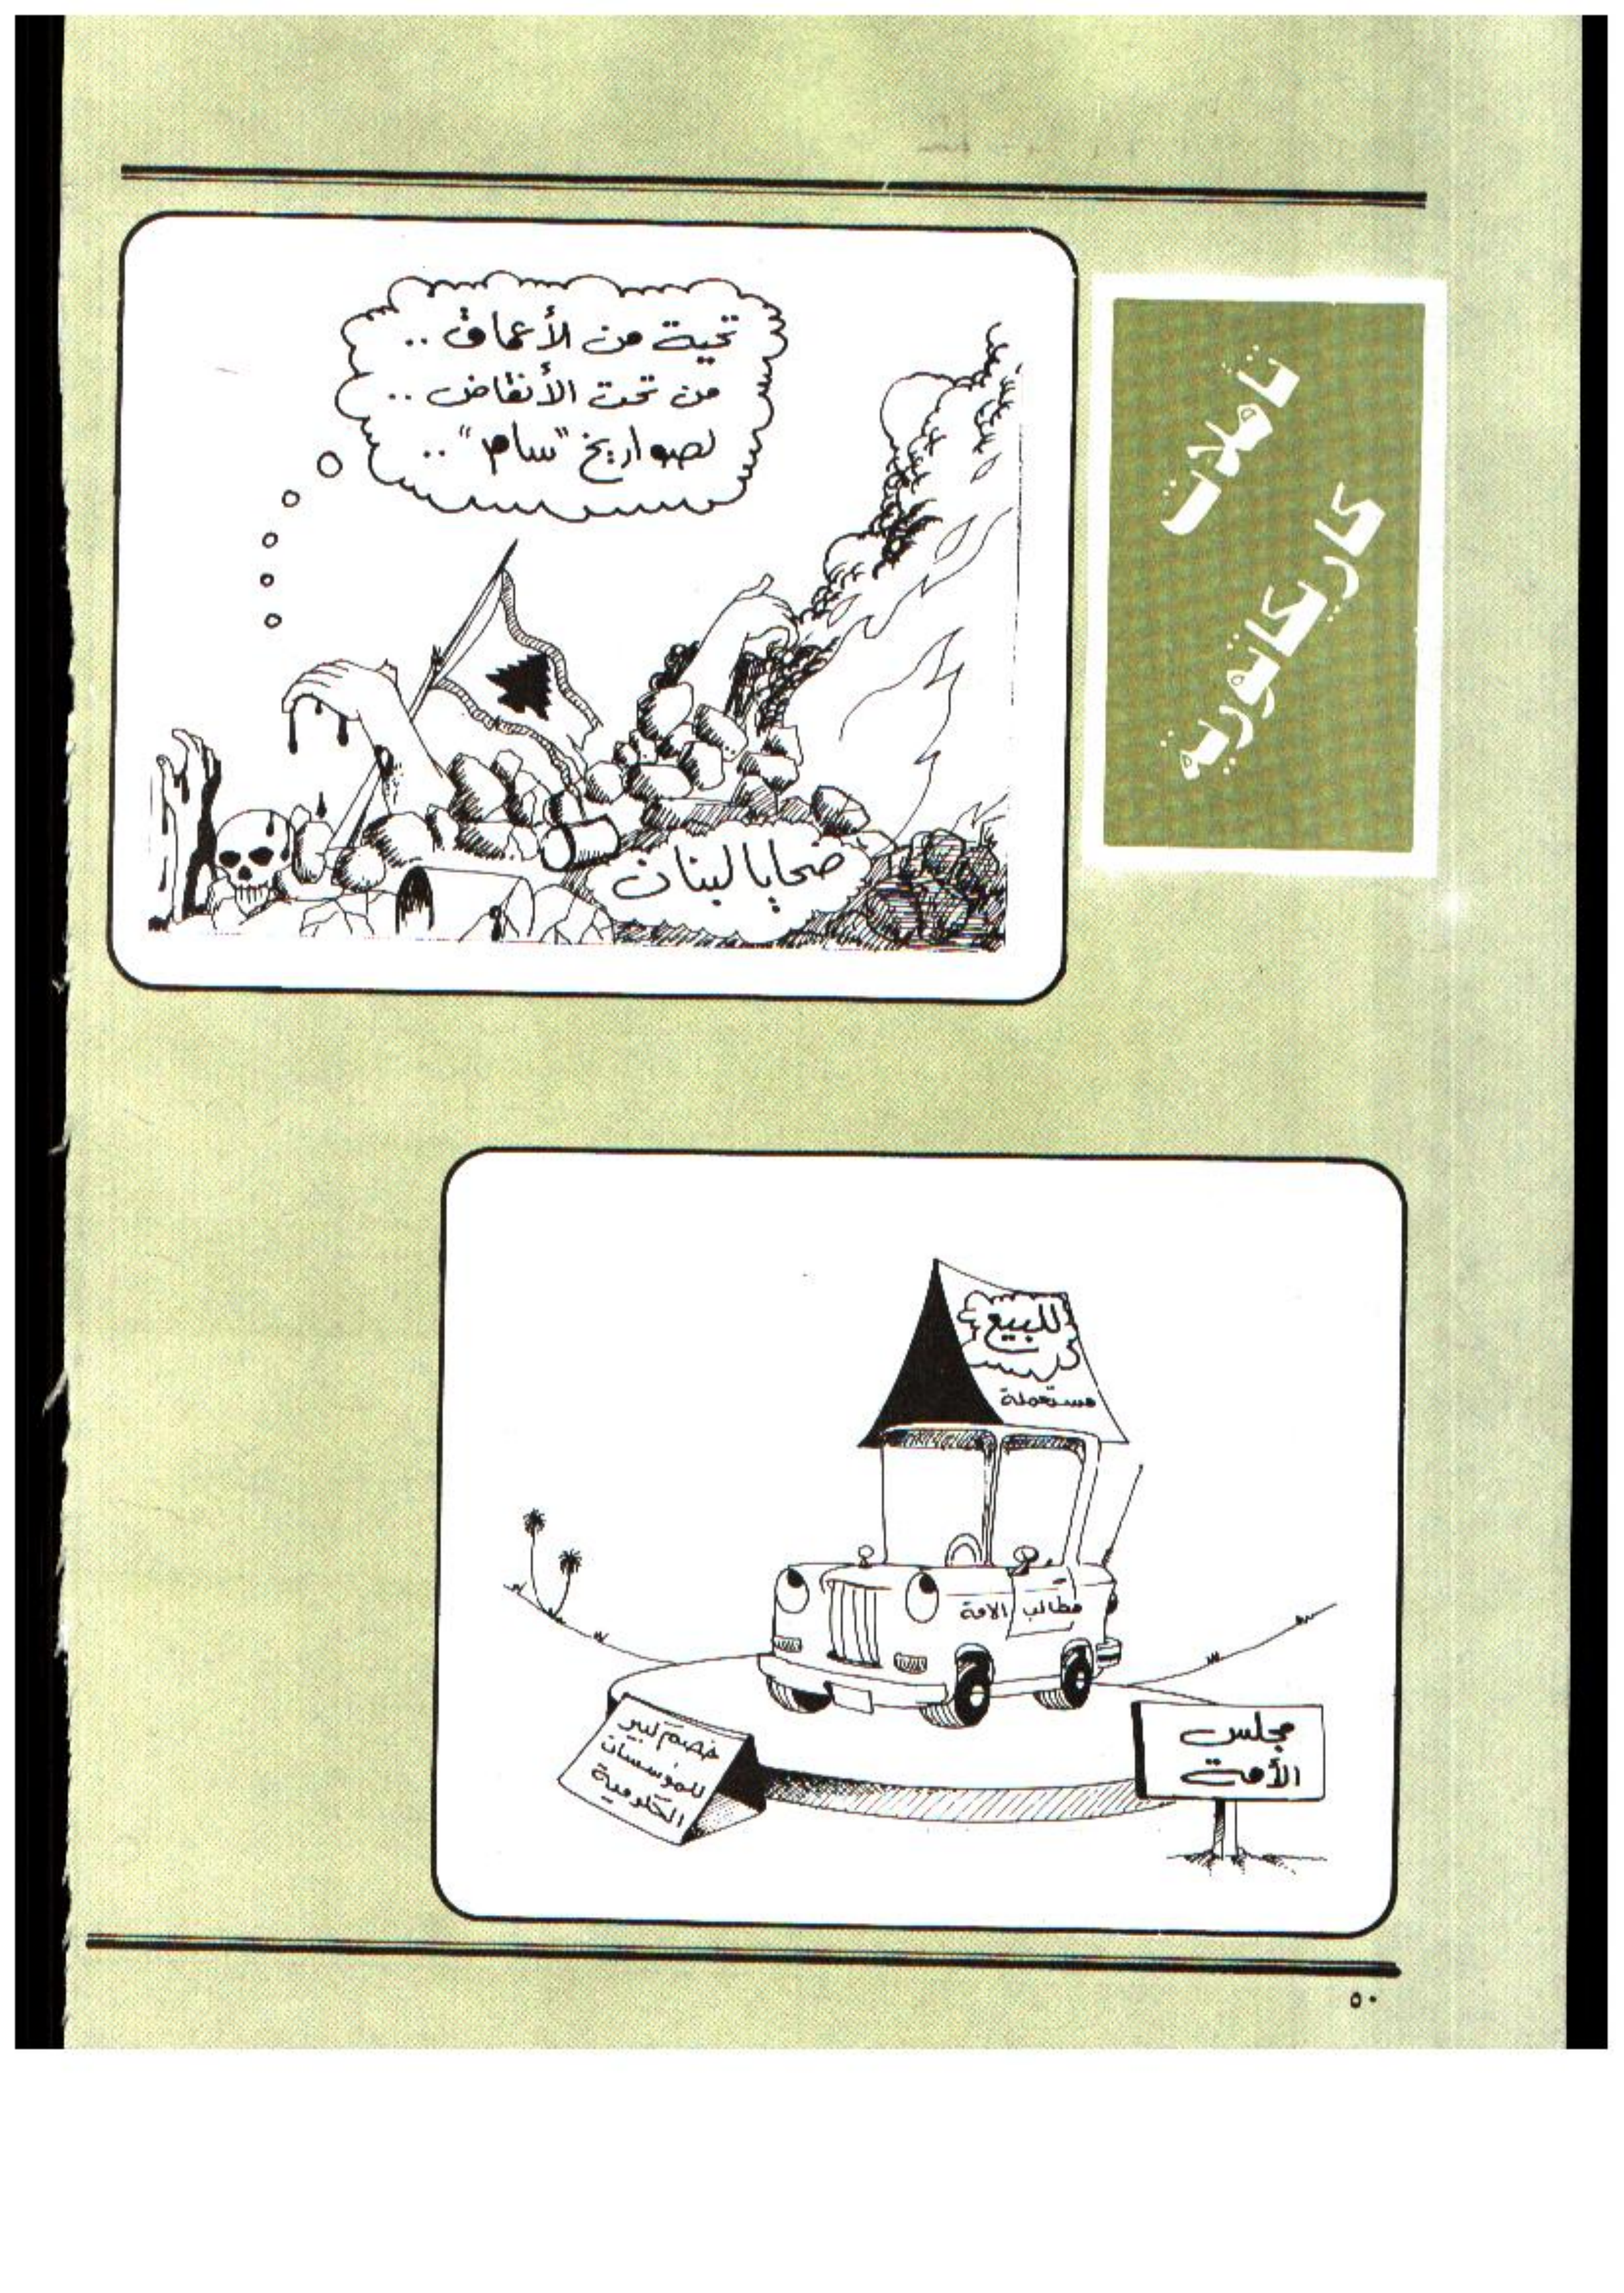 تأملات
كاريكاتورية
تحية من الأعماق ..
من تحت الأنقاض ..
لصواريخ "سام" ..
ضحايا لبنان
للبيع
مستعملة
مطالب الامة
خصم كبير
للمؤسسات
الحكومية
مجلس
الأمة
٥٠